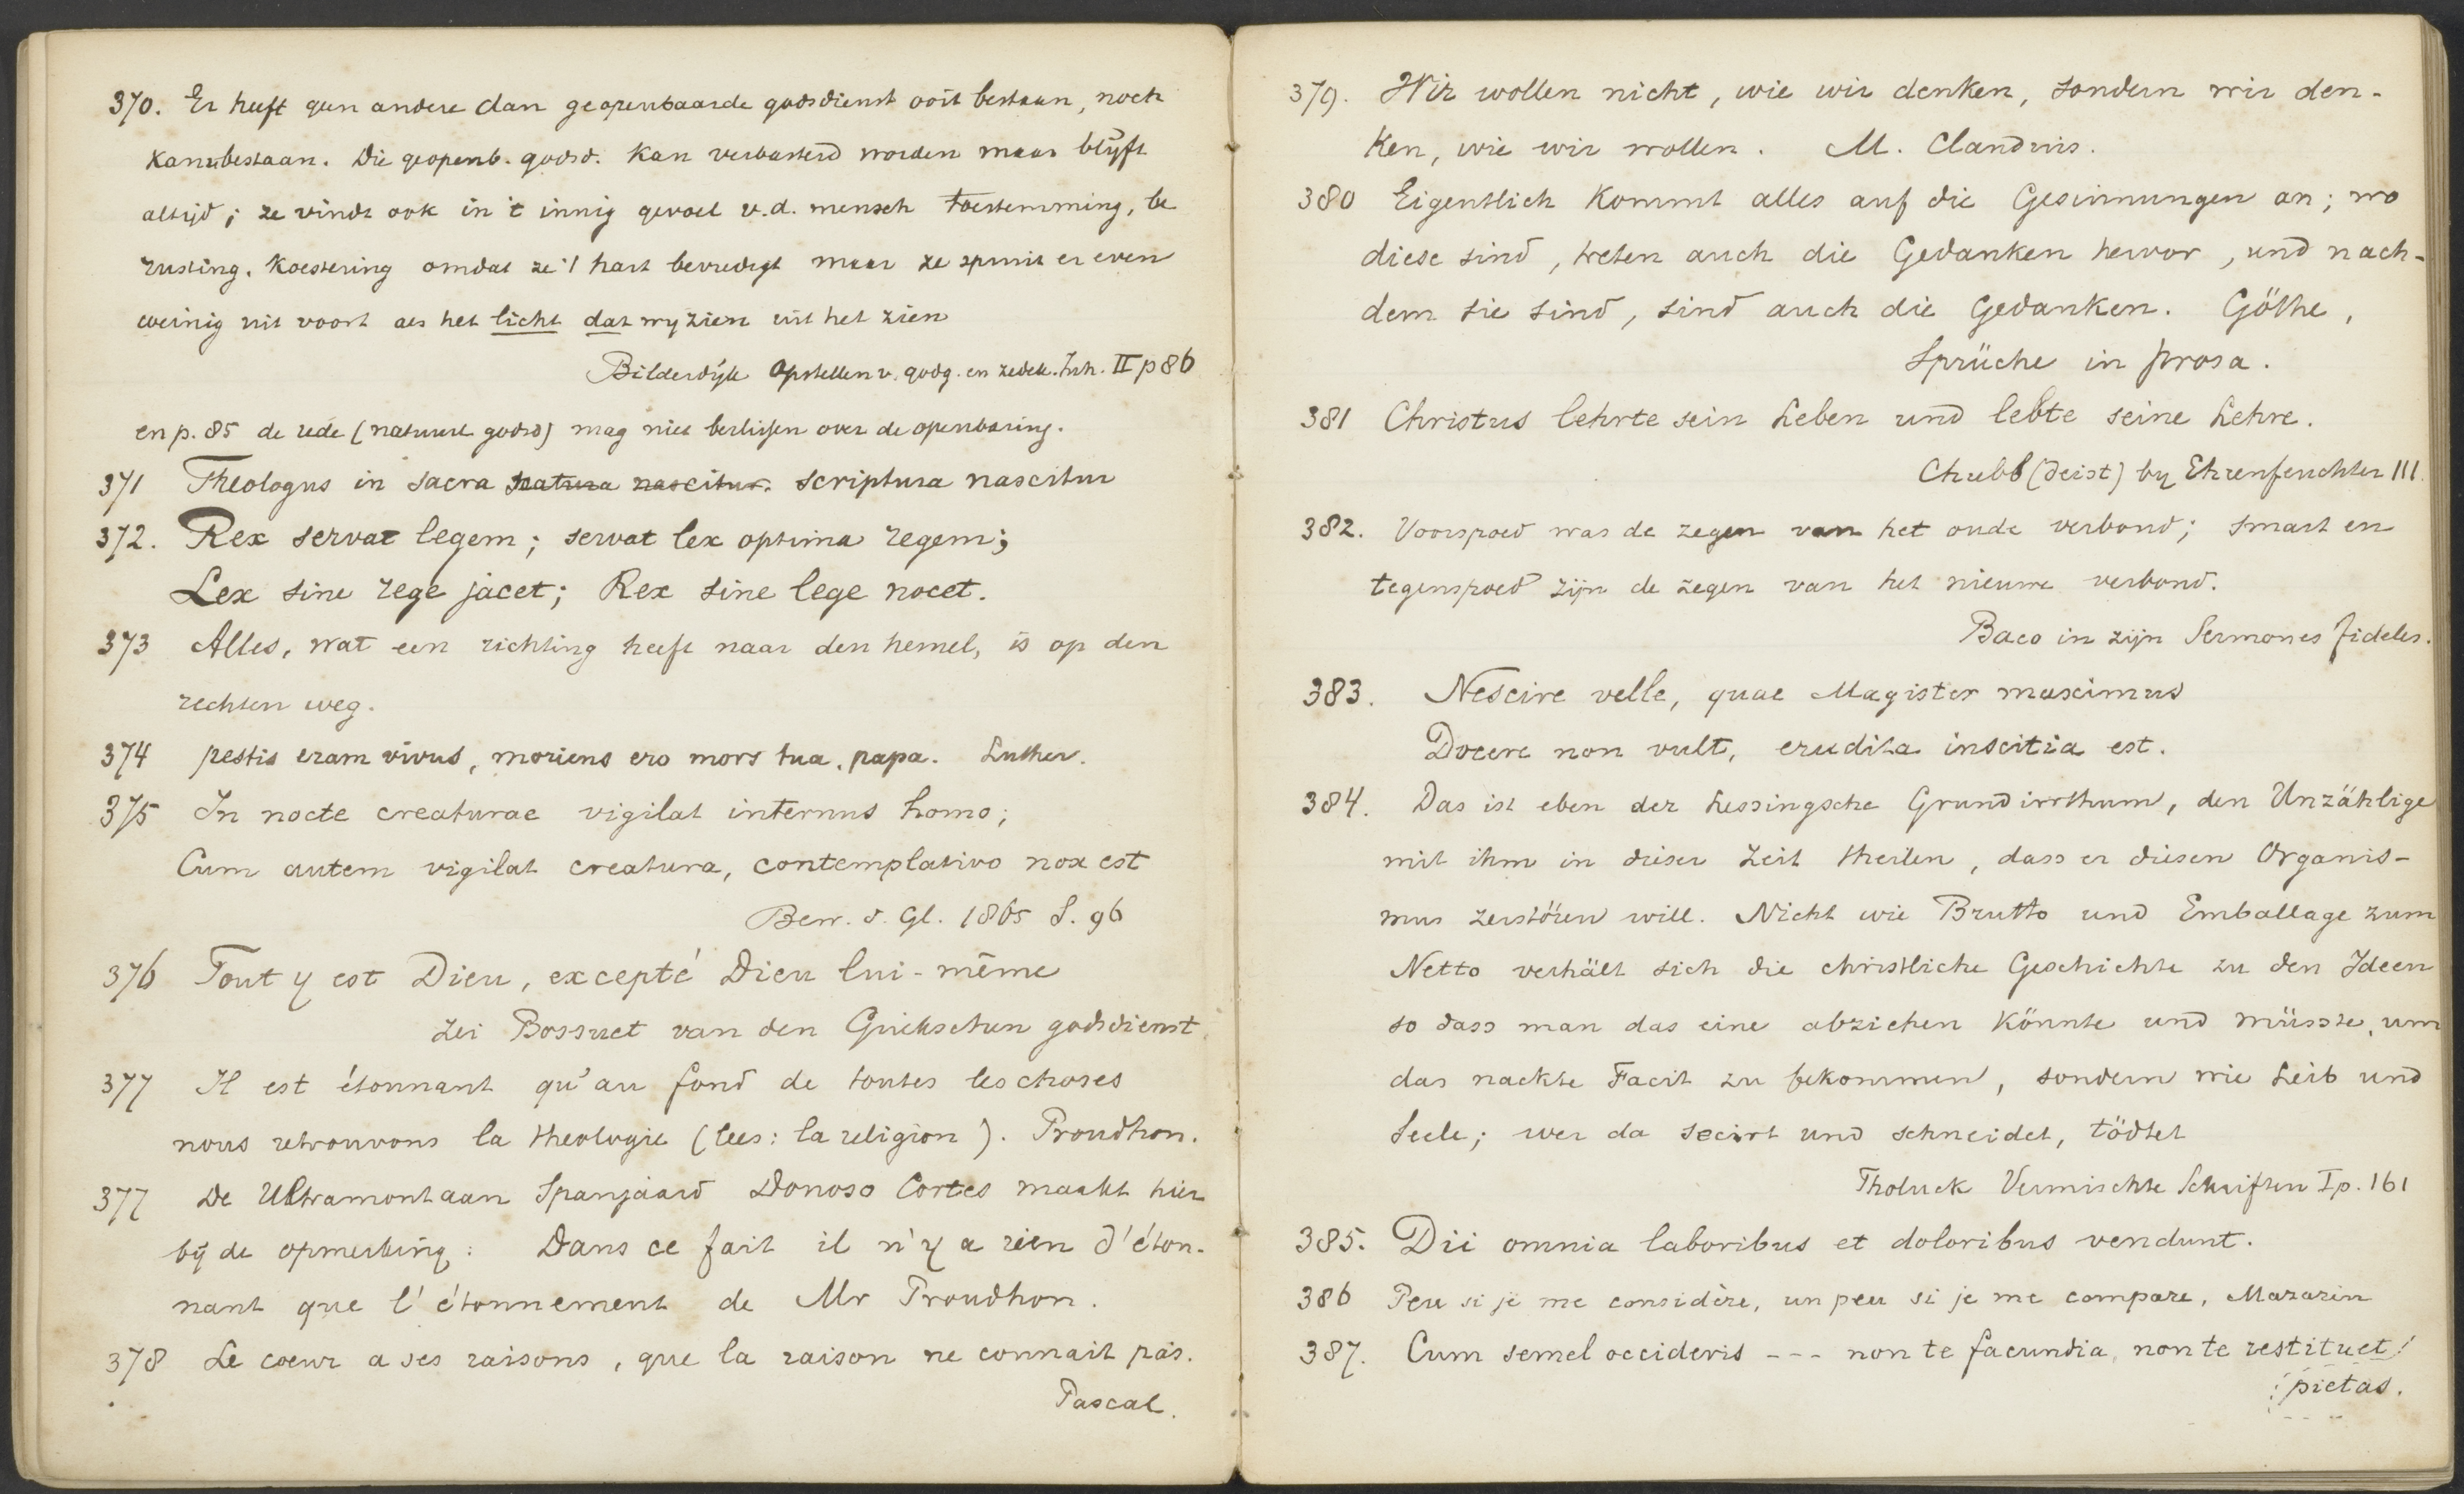 370. Er heeft geen andere dan geopenbaarde godsdienst ooit bestaan, noch
kan bestaan. Die geopenb. godsd. kan verbasterd worden maar blijft
altijd; ze vindt ook in 't innig gevoel v.d. mensch toestemming, be
rusting, koestering omdat ze 't hart bevredigt maar ze spruit er even
weinig uit voort als het licht dat wy zien uit het zien
Bilderdijk Opstellen v. godg. en zedek. Inh. II p 86
en p. 85 de rede (natuurl godsd) mag niet beslissen over de openbaring.
371 Theologus in sacra natura nascitur. scriptura nascitur
372. Rex servat legem; servat lex optima regem;
Lex sine rege jacet; Rex sine lege nocet.
373 Alles, wat een richting heeft naar den hemel, is op den
rechten weg.
374 pestis eram vivus, moriens ero mors tua, papa. Luther.
375 In nocte creaturae vigilat internus homo;
Cum autem vigilat creatura, contemplativo nox est
Bew. d. Gl. 1865 S. 96
376 Tout y est Dieu, excepté Dieu lui-même
zei Bossuet van den Griekschen godsdienst
377 Il est étonnant qu'au fond de toutes les choses
nous retrouvons la theologie (lees: la religion). Proudhon.
377 De Ultramontaan Spanjaard Donoso Cortes maakt hier
bij de opmerking: Dans ce fait il n'y a rien d'éton-
nant que l'étonnement de Mr Proudhon.
378 Le coeur a ses raisons, que la raison ne connait pas.
Pascal.
379. Wir wollen nicht, wie wir denken, sondern wir den-
ken, wie wir wollen. M. Claudius.
380 Eigentlich kommt alles auf die Gesinnungen an; wo
diese sind, treten auch die Gedanken hervor, und nach-
dem sie sind, sind auch die Gedanken. Göthe,
Sprüche in prosa.
381 Christus lehrte sein Leben und lebte seine Lehre.
Chubb (deist) by Ehrenfeuchter 111.
382. Voorspoed was de zegen van het oude verbond; smart en
tegenspoed zijn de zegen van het nieuwe verbond.
Baco in zijn Sermones fideles.
383. Nescire velle, quae Magister maximus
Docere non vult, erudita inscitia est.
384. Das ist eben der Lessingsche Grundirrthum, den Unzählige
mit ihm in dieser Zeit theilen, dass er diesen Organis-
mus zerstören will. Nicht wie Brutto und Emballage zum
Netto verhält sich die christliche Geschichte zu den Ideen
so dass man das eine abziehen könnte und müsste, um
das nackte Facit zu bekommen, sondern wie Leib und
Seele; wer da secirt und schneidet, tödtet
Tholuck Vermischte Schriften I p. 161
385. Dii omnia laboribus et doloribus vendunt.
386 Peu si je me considère, un peu si je me compare, Mazarin
387. Cum semel occideris --- non te facundia, non te restituet
pietas.